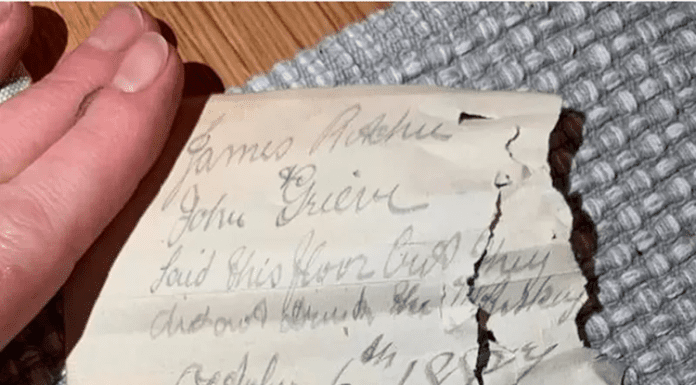 James Ritchie
& John Grieve
laid this floor but they
did not drink the Whiskey
October 6th 1887